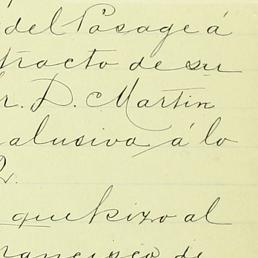 del Pasage á
tracto de su
r. D. Martin
alusiva á lo
2.
que hizo al
rancisco de